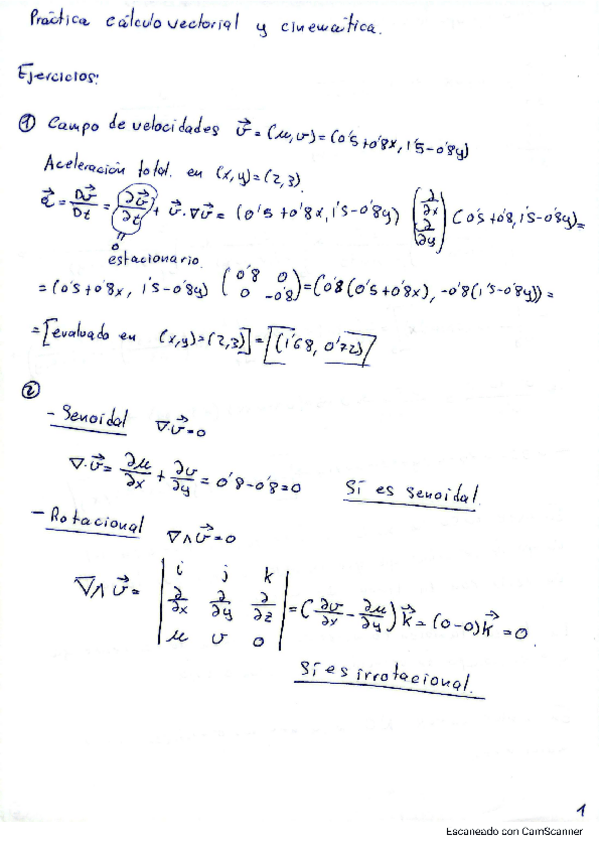 Práctica cálculo vectorial y cinemática.
Ejercicios:
① Campo de velocidades v⃗=(u,v)=(0'5+0'8x, 1'5-0'8y)
Aceleración total. en (x,y)=(2,3).
a⃗ = Dv⃗/Dt = ∂v⃗/∂t + v⃗·∇v⃗ = (0'5+0'8x, 1'5-0'8y) (∂/∂x ∂/∂y) (0'5+0'8, 1'5-0'8y)=
0
estacionario.
=(0'5+0'8x, 1'5-0'8y) (0'8 0 0 -0'8)=(0'8(0'5+0'8x), -0'8(1'5-0'8y))=
=[evaluado en (x,y)=(2,3)]=(1'68, 0'72)
②
- Senoidal ∇·v⃗=0
∇·v⃗= ∂u/∂x + ∂v/∂y = 0'8-0'8=0 Sí es senoidal.
- Rotacional ∇∧v⃗=0
∇∧v⃗= |i j k ∂/∂x ∂/∂y ∂/∂z u v 0| =(∂v/∂x - ∂u/∂y)k⃗=(0-0)k⃗=0.
Sí es irrotacional.
1
Escaneado con CamScanner